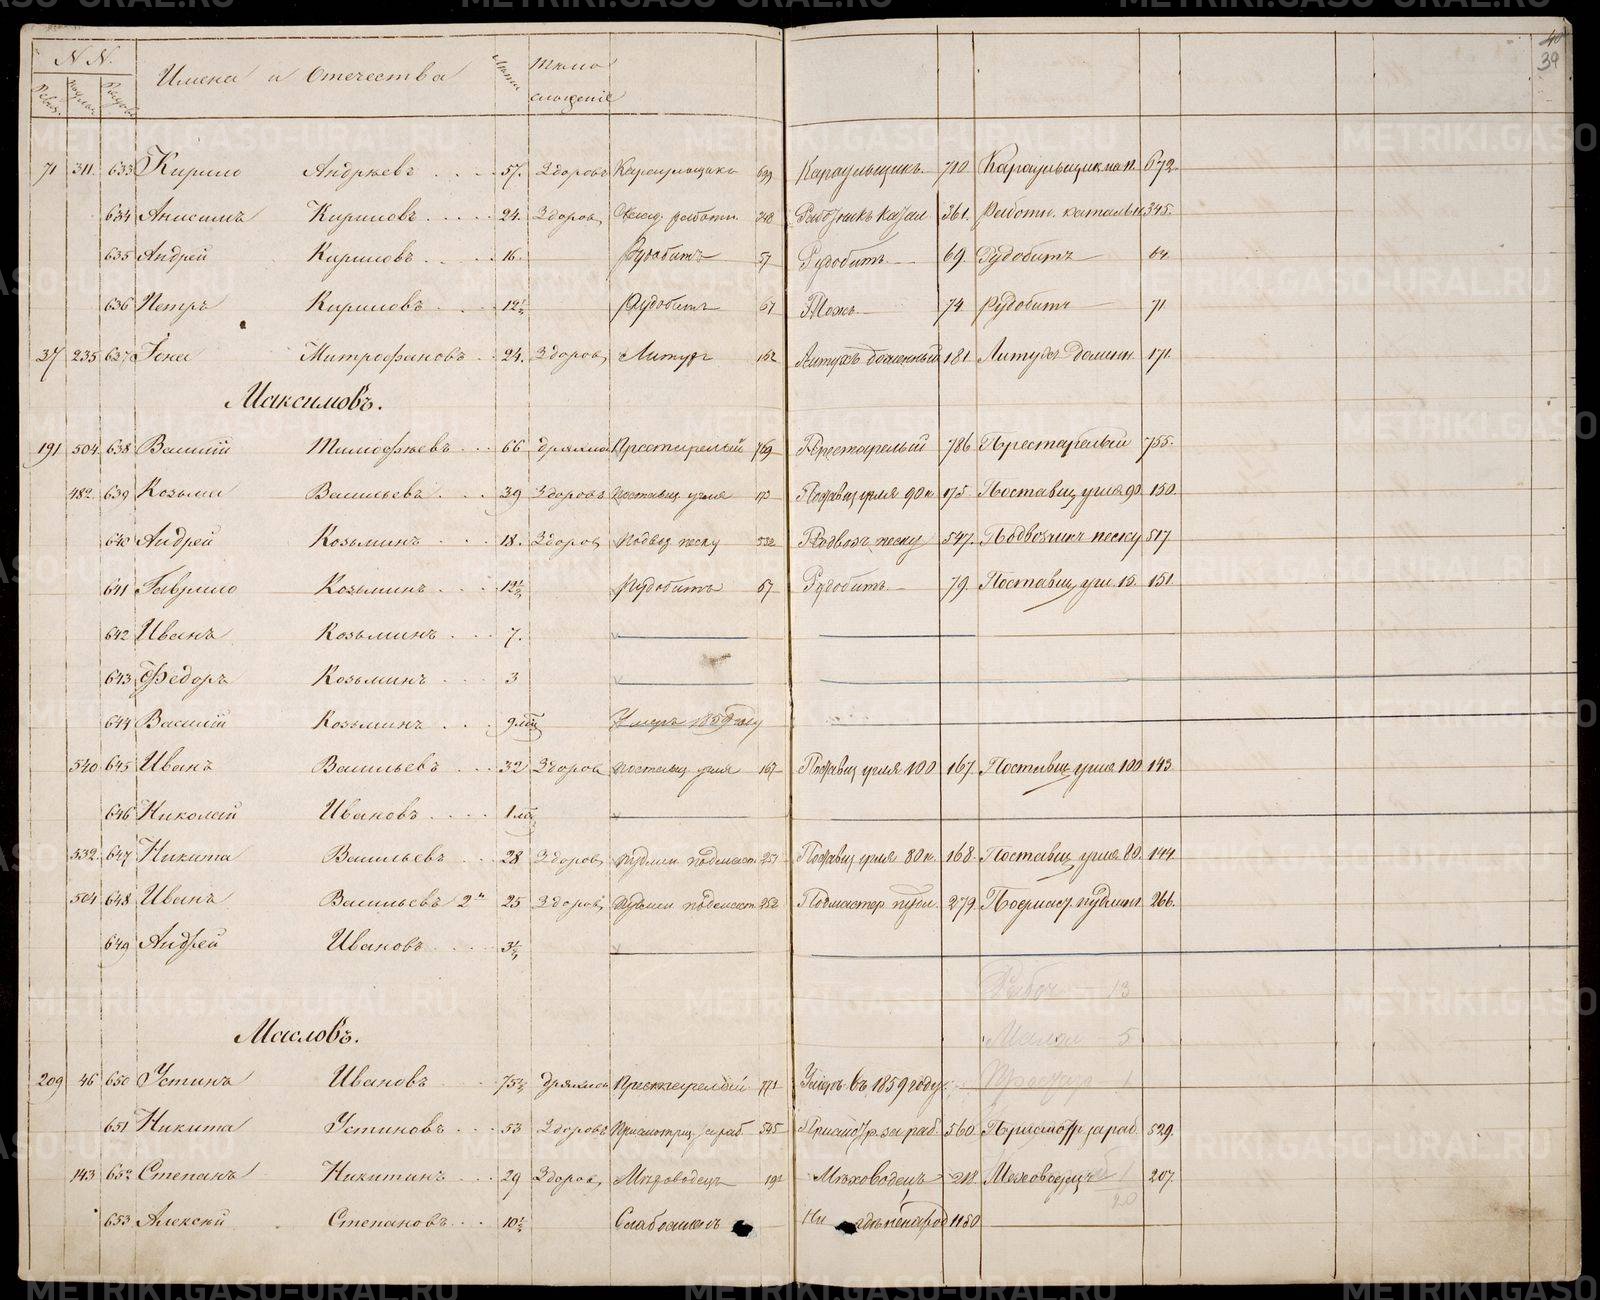 40
39
N N.
Имена и Отечества
Лѣта
Тѣло
сложеніе
71 311 633 Кирило Андрѣевъ 57. Здоровъ Караульщикъ 699 Караульщикъ 710 Караульщикъ 672.
634 Анисимъ Кириловъ 24. Здоров. работн. 348 361. Работн. 345.
635 Андрей Кириловъ 16. Рудобитъ 57 Рудобитъ 69. Рудобитъ 64.
636 Петръ Кириловъ 12½ Рудобитъ 67 Тожъ 74. Рудобитъ 71
37 235 637 Іона Митрофановъ 24. Здоров. Литухъ 162 Литухъ доменный 181. Литухъ домен. 171.
Максимовъ.
191 504 638 Василій Тимофѣевъ 66 дряхлъ Престарелый 769 Престарелый 786 Престарелый 755.
482. 639 Козьма Васильевъ 39 Здоровъ Поставщ. угля 173 Поставщ угля 90 к. 175. Поставщ. угля 90. 150.
640 Андрей Козьминъ 18. Здоров. Подвоз. песку 532 Подвозч. песку 547. Подвозчикъ песку 517
641 Гаврило Козьминъ 12½ Рудобитъ 67 Рудобитъ 79. Поставщ. угл. 15. 151.
642 Иванъ Козьминъ 7.
643 Федоръ Козьминъ 3
644 Василій Козьминъ 9 мѣс. Умеръ 1859 году
540 645 Иванъ Васильевъ 32 Здоров. Поставщ. угля 167 Поставщ угля 100 167. Поставщ. угля 100 143.
646 Николай Ивановъ 1 мѣс.
532. 647 Никита Васильевъ 28 Здоров. Пудлин. подмаст. 251 Поставщ угля 80 к. 168. Поставщ угля 80. 144.
504 648 Иванъ Васильевъ 2й 25 Здоров. Пудлин. подмаст. 252 Подмастер. пудл. 279. Подмаст. пудлин. 266.
649 Андрей Ивановъ 3½
Рабоч. 13
Малол. – 5
Масловъ.
209 46 650 Устинъ Ивановъ 75½ дряхлъ Престарелый 771 Умеръ въ 1859 году. 1
651 Никита Устиновъ 53 Здоровъ Присмотрщ. за раб. 545 Присмотр. за раб. 560. Присмотр. за раб. 529.
143 652 Степанъ Никитинъ 29 Здоров. Мѣховодецъ 191 Мѣховодецъ 218 Меховодецъ 207.
20
653 Алексѣй Степановъ 10½ 1150
METRIKI.GASO-URAL.RU